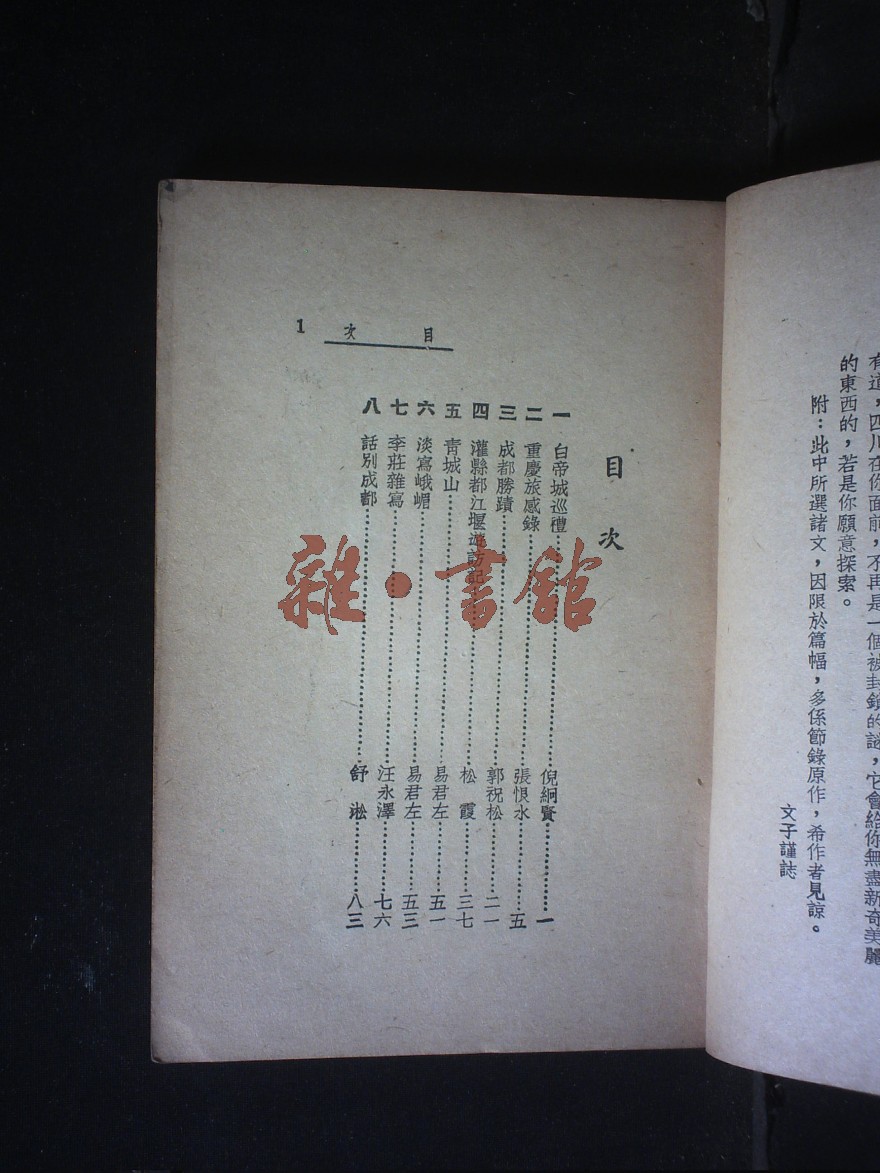 有道，四川在你面前，不再是一個被封鎖的謎，它會給你無盡新奇美麗
的東西的，若是你願意探索。
附：此中所選諸文，因限於篇幅，多係節錄原作，希作者見諒。
文子謹誌
目次 1
目次
一 白帝城巡禮……倪綗賢……一
二 重慶旅感錄……張恨水……五
三 成都勝蹟……郭祝松……二一
四 灌縣都江堰遊訪記……松霞……三七
五 青城山……易君左……五一
六 淡寫峨嵋……易君左……五三
七 李莊雜寫……汪永澤……七六
八 話別成都……舒淞……八三
雜·書館